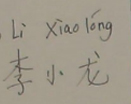 Li Xiǎolóng
李小龙